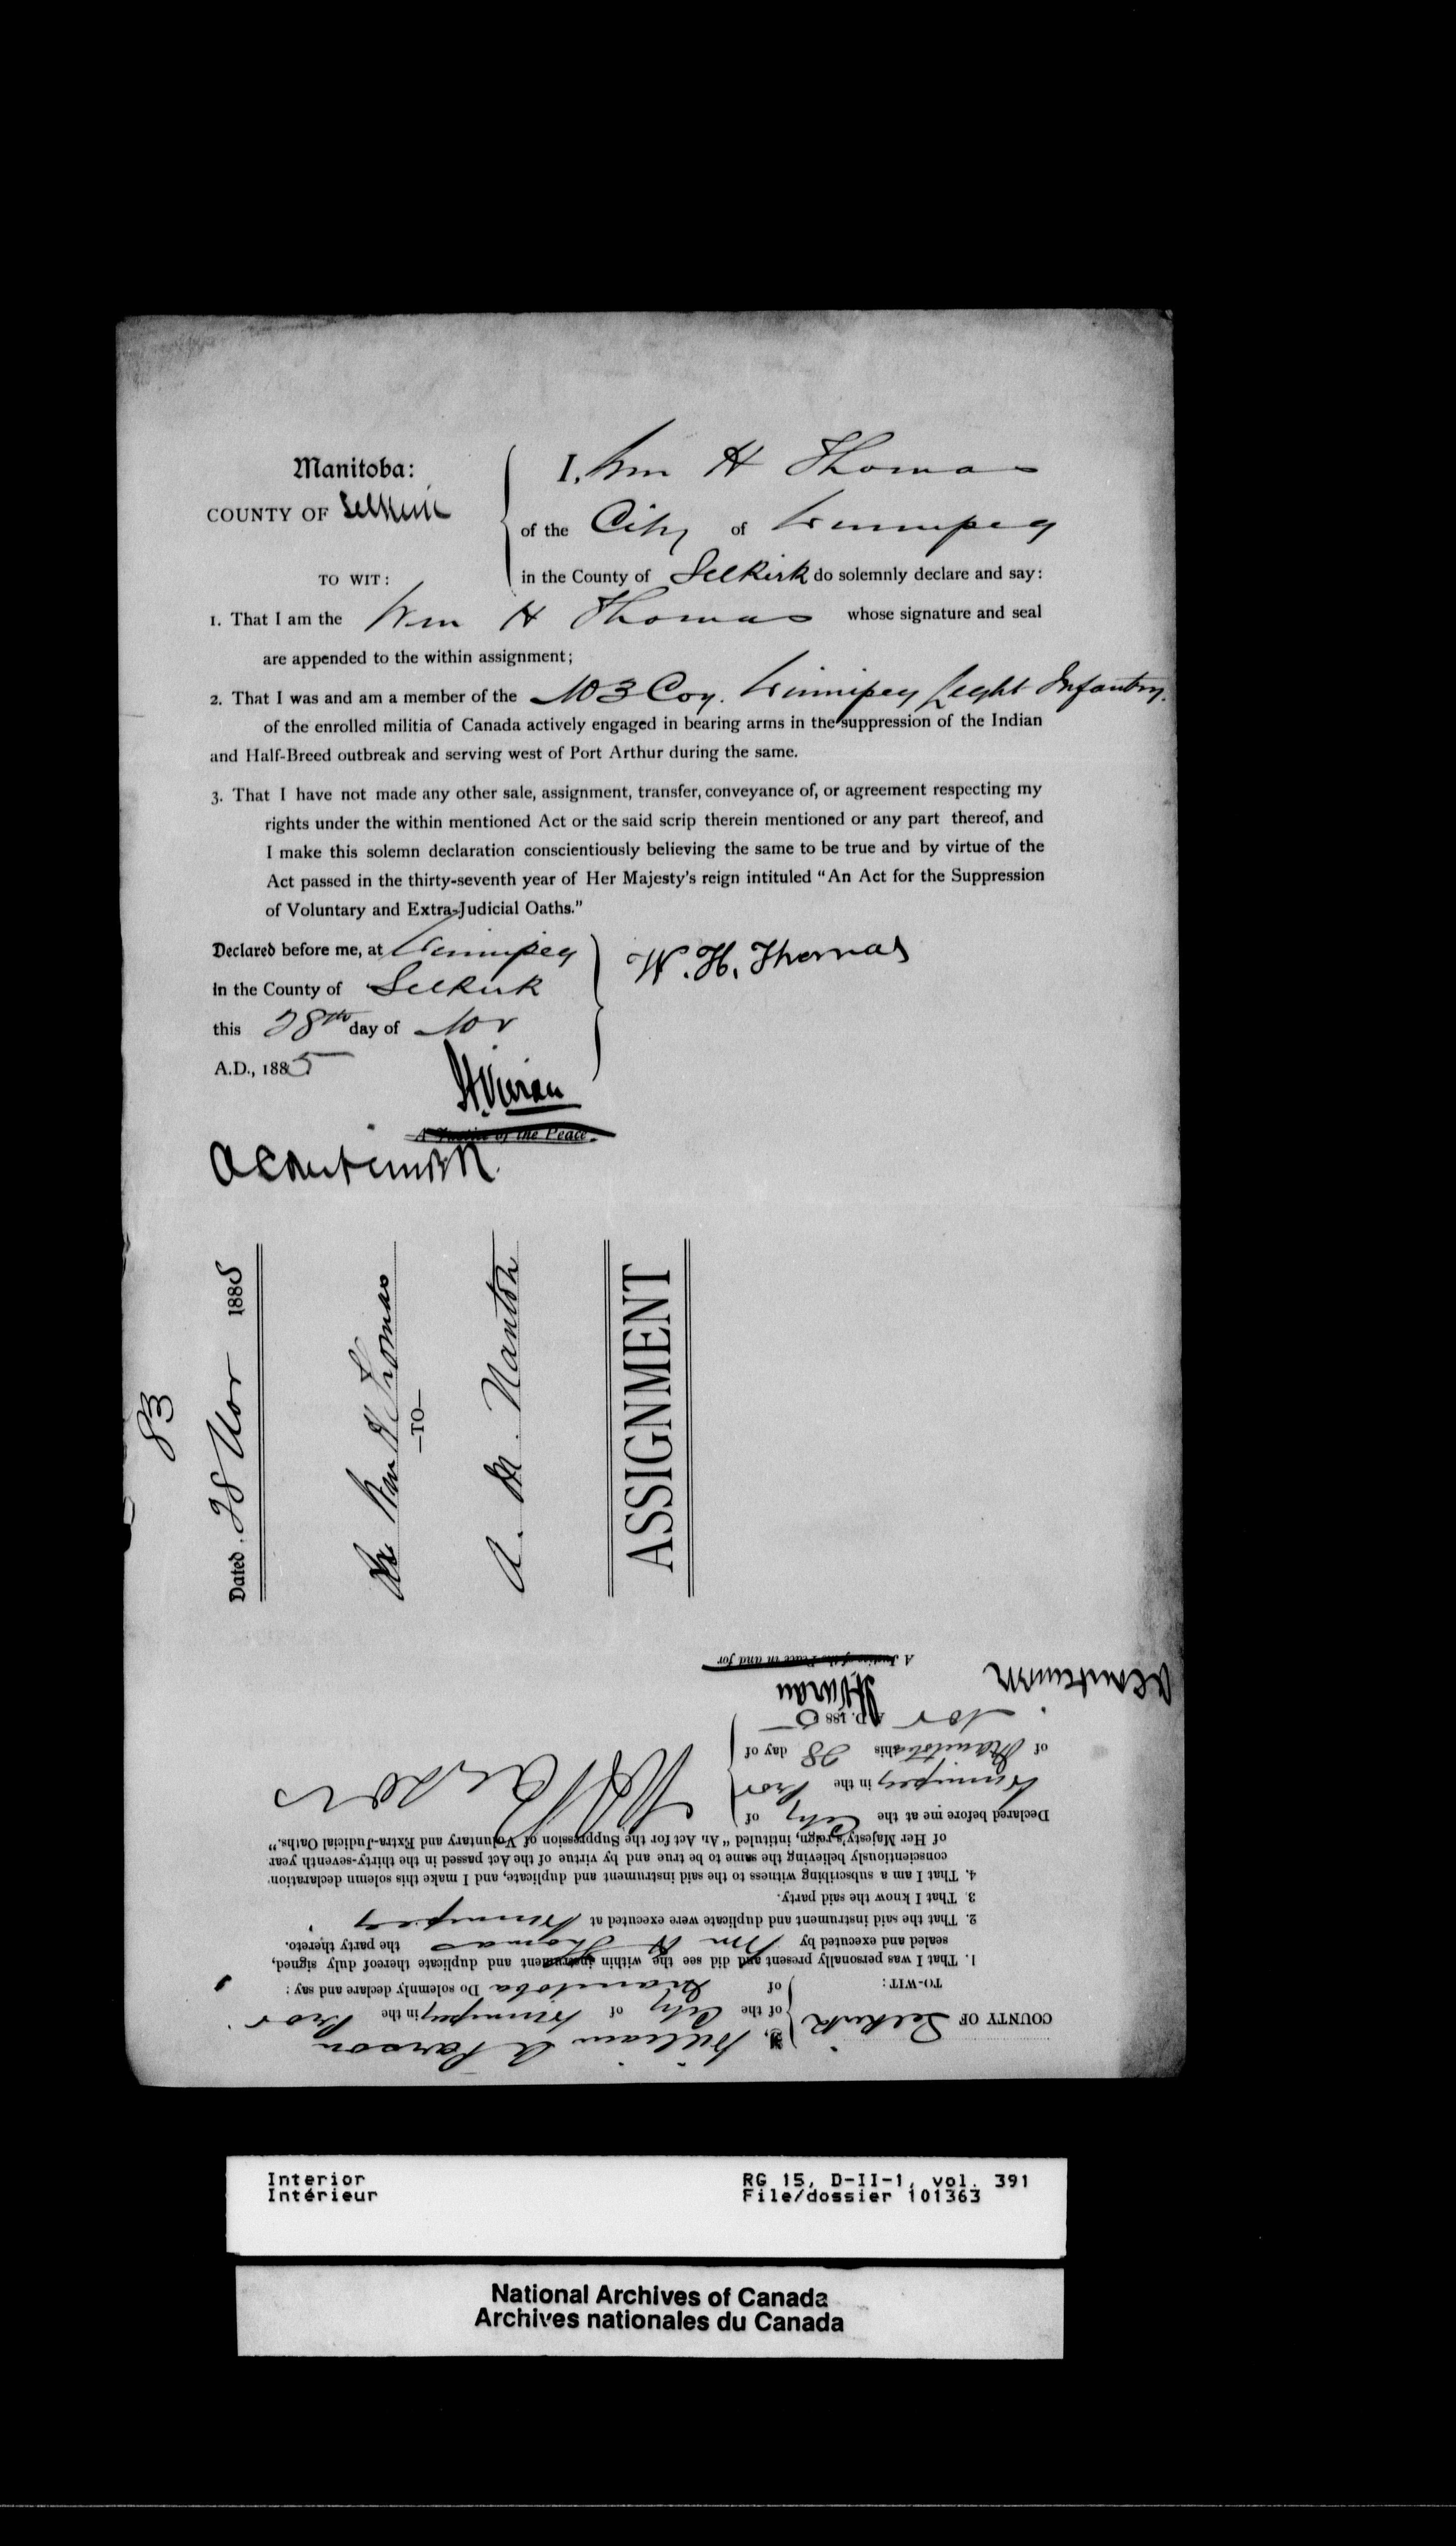 Manitoba:
COUNTY OF Selkirk
TO WIT:
I, Wm H Thomas
of the City of Winnipeg
in the County of Selkirk do solemnly declare and say:
1. That I am the Wm H Thomas whose signature and seal
are appended to the within assignment;
2. That I was and am a member of the No 3 Coy. Winnipeg Light Infantry.
of the enrolled militia of Canada actively engaged in bearing arms in the suppression of the Indian
and Half-Breed outbreak and serving west of Port Arthur during the same.
3. That I have not made any other sale, assignment, transfer, conveyance of, or agreement respecting my
rights under the within mentioned Act or the said scrip therein mentioned or any part thereof, and
I make this solemn declaration conscientiously believing the same to be true and by virtue of the
Act passed in the thirty-seventh year of Her Majesty's reign intituled "An Act for the Suppression
of Voluntary and Extra-Judicial Oaths."
Declared before me, at Winnipeg
in the County of Selkirk
this 28th day of Nov
A.D., 1885
W. H. Thomas
H. Vivian
A Justice of the Peace.
83
Dated 28 Nov 1885
Wm H Thomas
—TO—
A. M. Nanton
ASSIGNMENT
COUNTY OF Selkirk
TO-WIT:
I, William A Parson
of the City of Winnipeg in the Prov
of Manitoba Do solemnly declare and say:
1. That I was personally present and did see the within instrument and duplicate thereof duly signed,
sealed and executed by Wm H Thomas the party thereto.
2. That the said instrument and duplicate were executed at Winnipeg
3. That I know the said party.
4. That I am a subscribing witness to the said instrument and duplicate, and I make this solemn declaration
conscientiously believing the same to be true and by virtue of the Act passed in the thirty-seventh year
of Her Majesty's reign, intituled "An Act for the Suppression of Voluntary and Extra-Judicial Oaths."
Declared before me at the City of
Winnipeg in the Prov
of Manitoba this 28 day of
Nov A.D. 1885
H. Vivian
A Justice of the Peace in and for
Interior
Intérieur
RG 15, D-II-1, vol. 391
File/dossier 101363
National Archives of Canada
Archives nationales du Canada